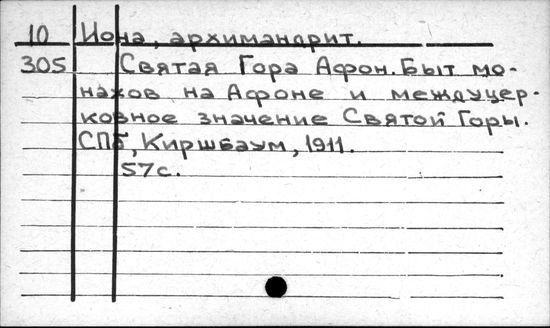 10 Иона, архимандрит.
305 Святая Гора Афон. Быт мо-
нахов на Афоне и междуцер-
ковное значение Святой Горы.
СПб, Киршбаум, 1911.
57с.